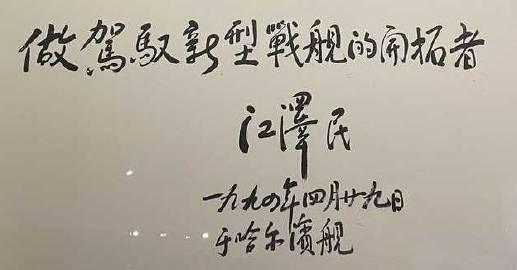 做駕馭新型戰舰的開拓者
江澤民
一九九四年四月廿九日
于哈尔濱舰